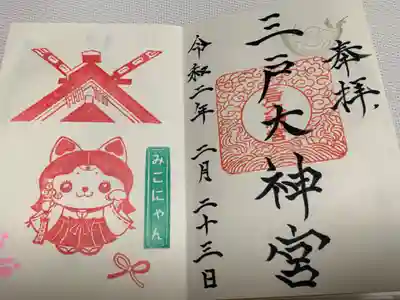 奉拝
三戸大神宮
令和二年 二月 二十三日
みこにゃん